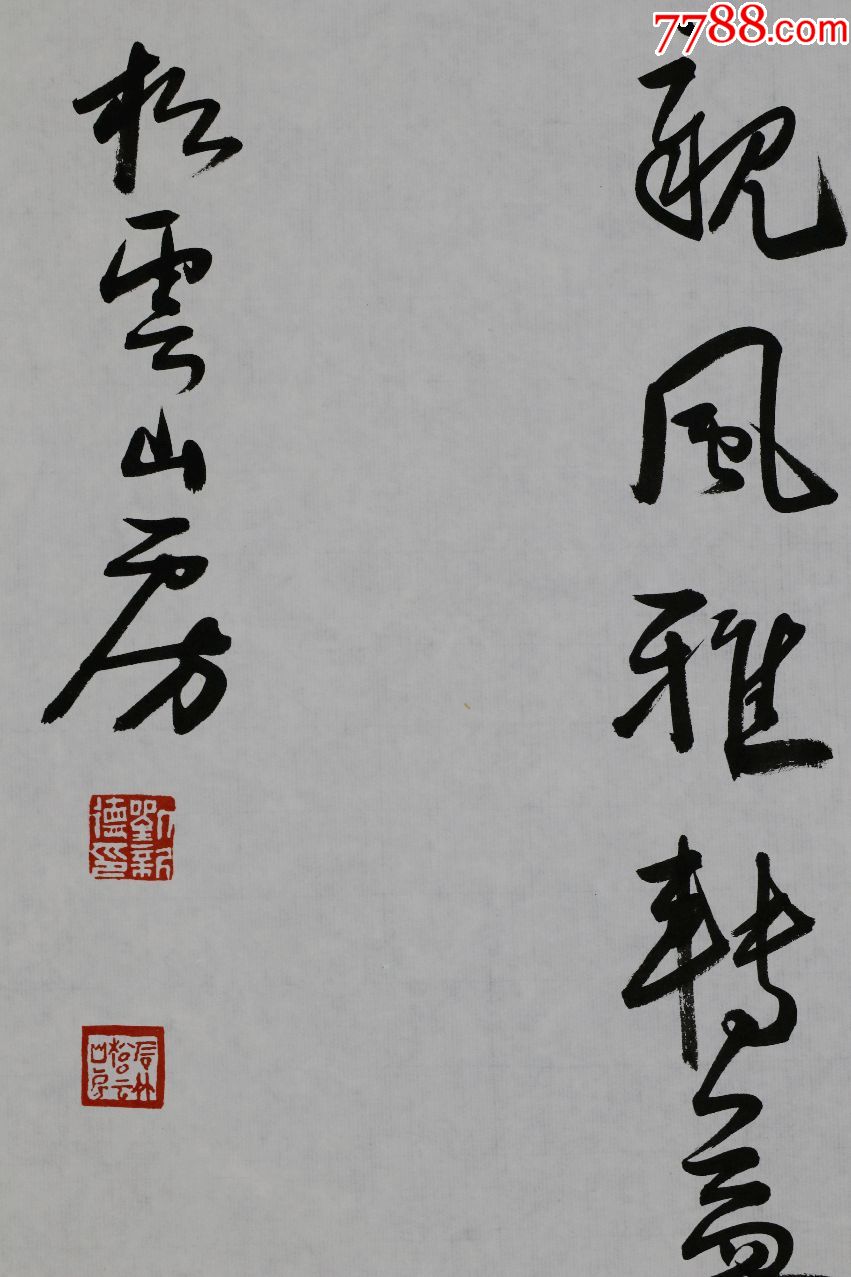 7788.com
親風雅轉益
松雲山房
劉新
德印